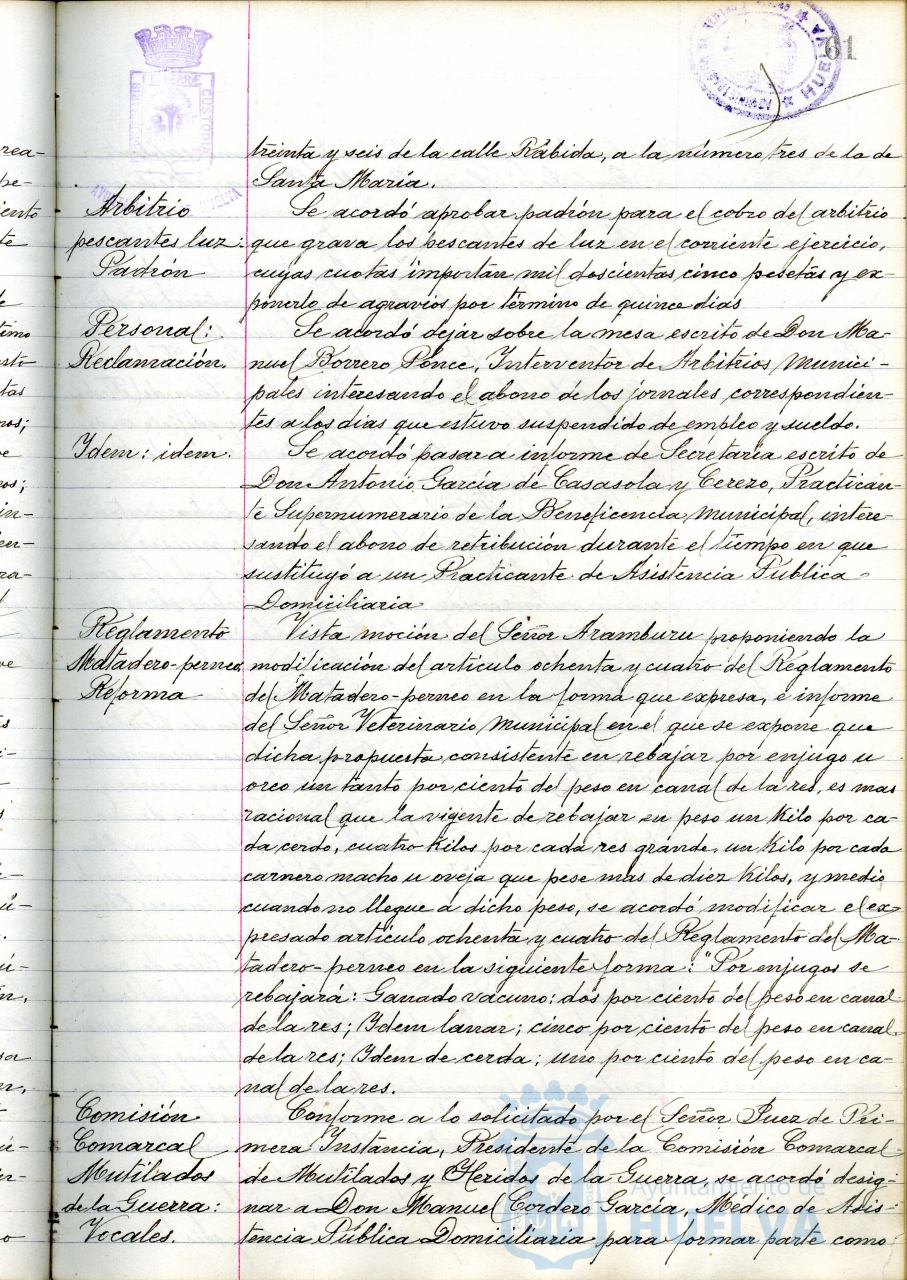 61
HUELVA
treinta y seis de la calle Rábida, a la número tres de la de
Santa María.
Arbitrio
pescantes luz.
Padrón
Se acordó aprobar padrón para el cobro del arbitrio
que grava los pescantes de luz en el corriente ejercicio,
cuyas cuotas importan mil doscientas cinco pesetas y ex-
ponerlo de agravios por término de quince dias
Personal:
Reclamación.
Se acordó dejar sobre la mesa escrito de Don Ma-
nuel Borrero Ponce, Interventor de Arbitrios Munici-
pales interesando el abono de los jornales correspondien-
tes a los dias que estuvo suspendido de empleo y sueldo.
Idem: idem.
Se acordó pasar a informe de Secretaría escrito de
Don Antonio García de Casasola y Cerezo, Practican-
te Supernumerario de la Beneficencia Municipal, intere-
sando el abono de retribución durante el tiempo en que
sustituyó a un Practicante de Asistencia Pública-
Domiciliaria
Reglamento
Matadero-perneo
Reforma
Vista moción del Señor Aramburu proponiendo la
modificación del artículo ochenta y cuatro del Reglamento
del Matadero-perneo en la forma que expresa, e informe
del Señor Veterinario Municipal en el que se expone que
dicha propuesta consistente en rebajar por enjugo u
oreo un tanto por ciento del peso en canal de la res, es mas
racional que la vigente de rebajar en peso un Kilo por ca-
da cerdo, cuatro Kilos por cada res grande, un Kilo por cada
carnero macho u oveja que pese mas de diez Kilos, y medio
cuando no llegue a dicho peso, se acordó modificar el ex-
presado artículo ochenta y cuatro del Reglamento del Ma-
tadero-perneo en la siguiente forma: "Por enjugos se
rebajará: Ganado vacuno: dos por ciento del peso en canal
de la res; Idem lanar; cinco por ciento del peso en canal
de la res; Idem de cerda; uno por ciento del peso en ca-
nal de la res.
Comisión
Comarcal
Mutilados
de la Guerra:
Vocales.
Conforme a lo solicitado por el Señor Juez de Pri-
mera Instancia, Presidente de la Comisión Comarcal
de Mutilados y Heridos de la Guerra, se acordó desig-
nar a Don Manuel Cordero García, Medico de Asis-
tencia Pública Domiciliaria para formar parte como
Ayuntamiento de
HUELVA